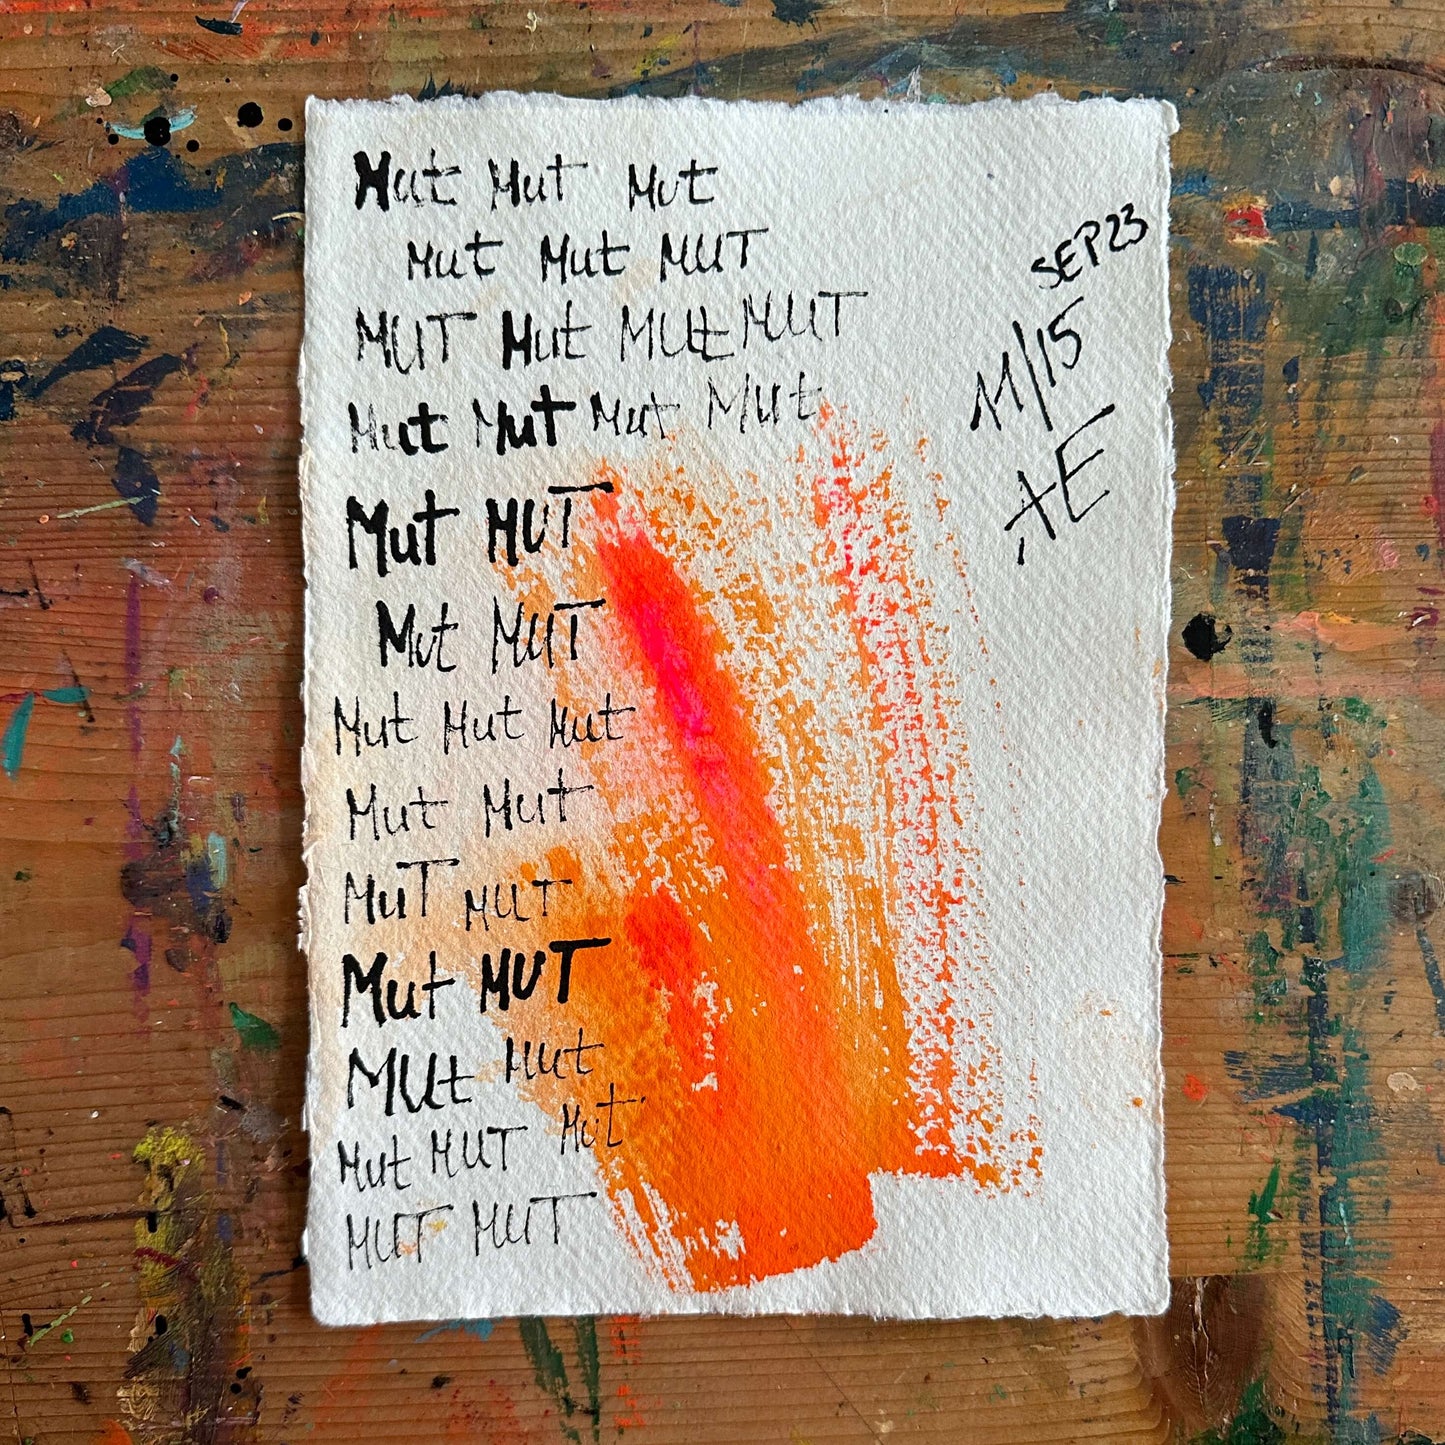 Mut Mut Mut
Mut Mut MUT
MUT Mut MUt MUT
Mut Mut Mut Mut
Mut MUT
Mut MUT
Mut Mut Mut
Mut Mut
MuT MUT
Mut MUT
MUt Mut
Mut MUT Mut
MUT MUT
SEP23
11/15
AE